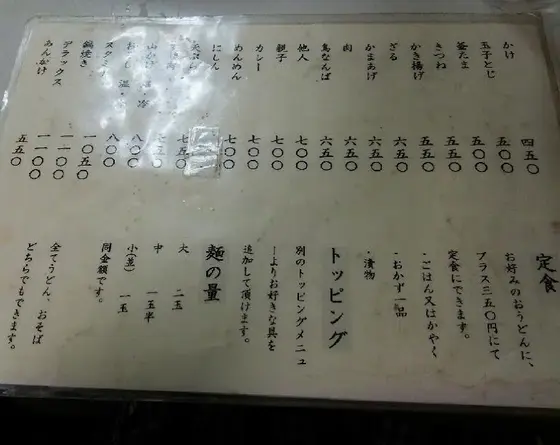 かけ 四五〇
玉子とじ 五〇〇
釜たま 五〇〇
きつね 五五〇
かき揚げ 五五〇
ざる 六五〇
かまあげ 六五〇
肉 六五〇
鳥なんば 六五〇
他人 七〇〇
親子 七〇〇
カレー 七〇〇
めんめん 七〇〇
にしん
七五〇
山かけ 温・冷
おろし 温・冷 八〇〇
スタミナ 八〇〇
鍋焼き 一〇五〇
デラックス 一一〇〇
あんかけ 五五〇
定食
お好みのおうどんに、
プラス二五〇円にて
定食にできます。
・ごはん又はかやく
・おかず一品
・漬物
トッピング
別のトッピングメニュ
ーよりお好きな具を
追加して頂けます。
麺の量
大 二玉
中 一玉半
小(並) 一玉
同金額です。
全てうどん、おそば
どちらでもできます。